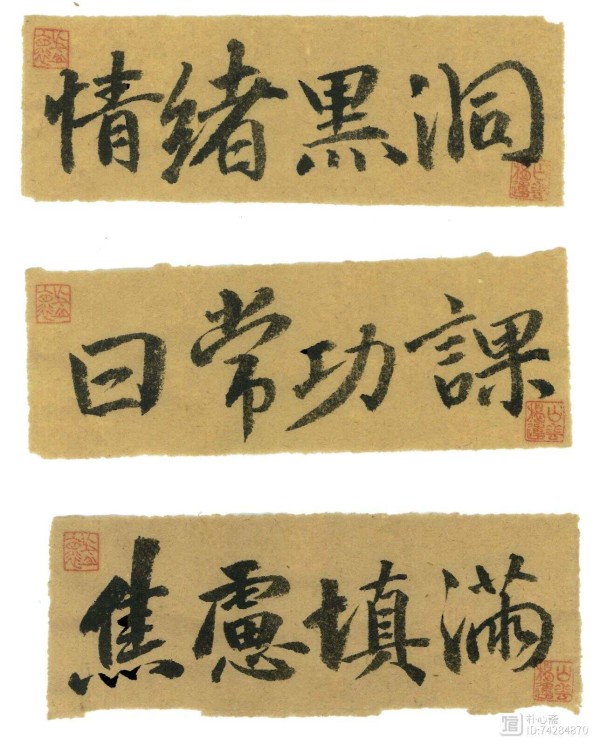 情緒黑洞
日常功課
焦慮填滿
朴心斋
ID:74284870